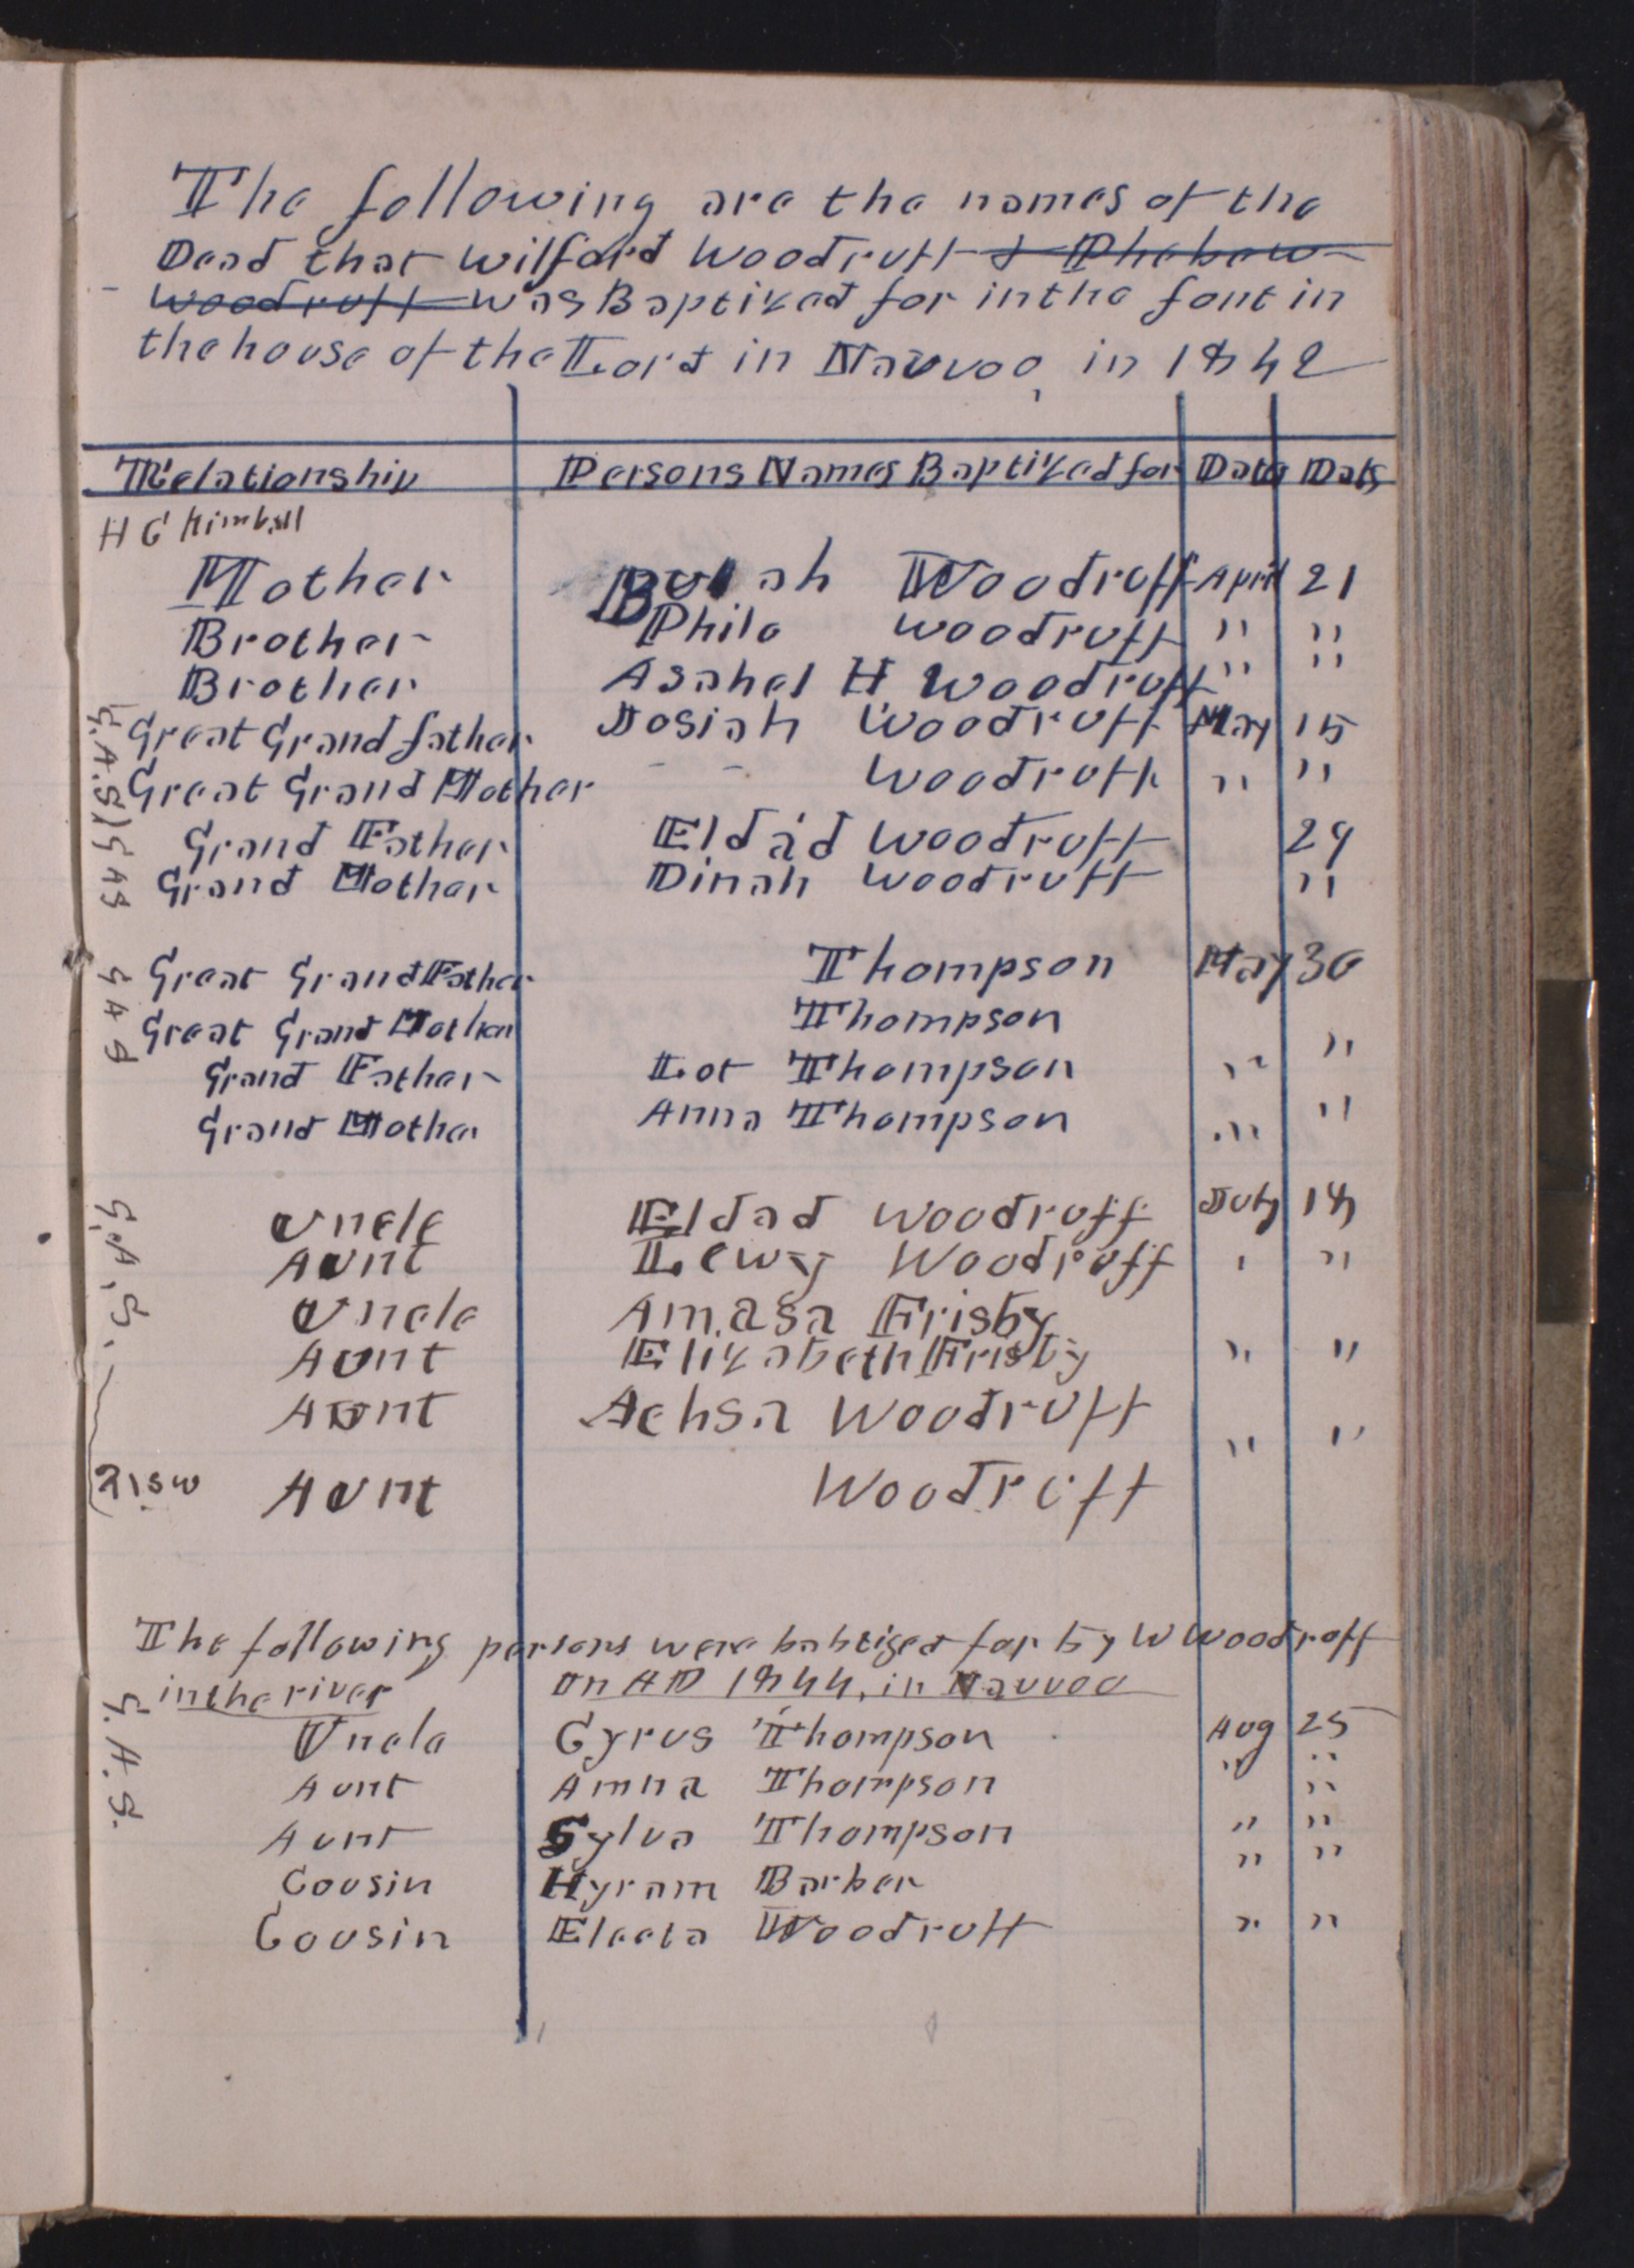 The following are the names of the
Dead that Wilford Woodruff & Phebe W
Woodruff was Baptized for in the font in
the house of the Lord in Nauvoo, in 1842
Relationship Persons Names Baptized for Date Date
H C Kimball
Mother Bulah Woodruff April 21
Brother Philo Woodruff " "
Brother Asahel H Woodruff " "
Great Grand father Josiah Woodruff May 15
Great Grand Mother - - Woodruff " "
Grand Father Eldad Woodruff 29
Grand Mother Dinah Woodruff "
G.A.S
G A S
Great Grand Father Thompson May 30
Great Grand Mother Thompson
Grand Father Lot Thompson " "
Grand Mother Anna Thompson " "
G A S
Uncle Eldad Woodruff July 18
Aunt Lewy Woodruff " "
Uncle Amasa Frisby
Aunt Elizabeth Frisby " "
Aunt Achsa Woodruff
" "
Aunt Woodruff
G.A.S.
The following persons were babtized for by W Woodruff
in the river On AD 1844, in Nauvoo
Uncle Cyrus Thompson Aug 25
Aunt Amna Thompson " "
Aunt Sylva Thompson " "
Cousin Hyram Barber " "
Cousin Electa Woodruff " "
G.A.S.